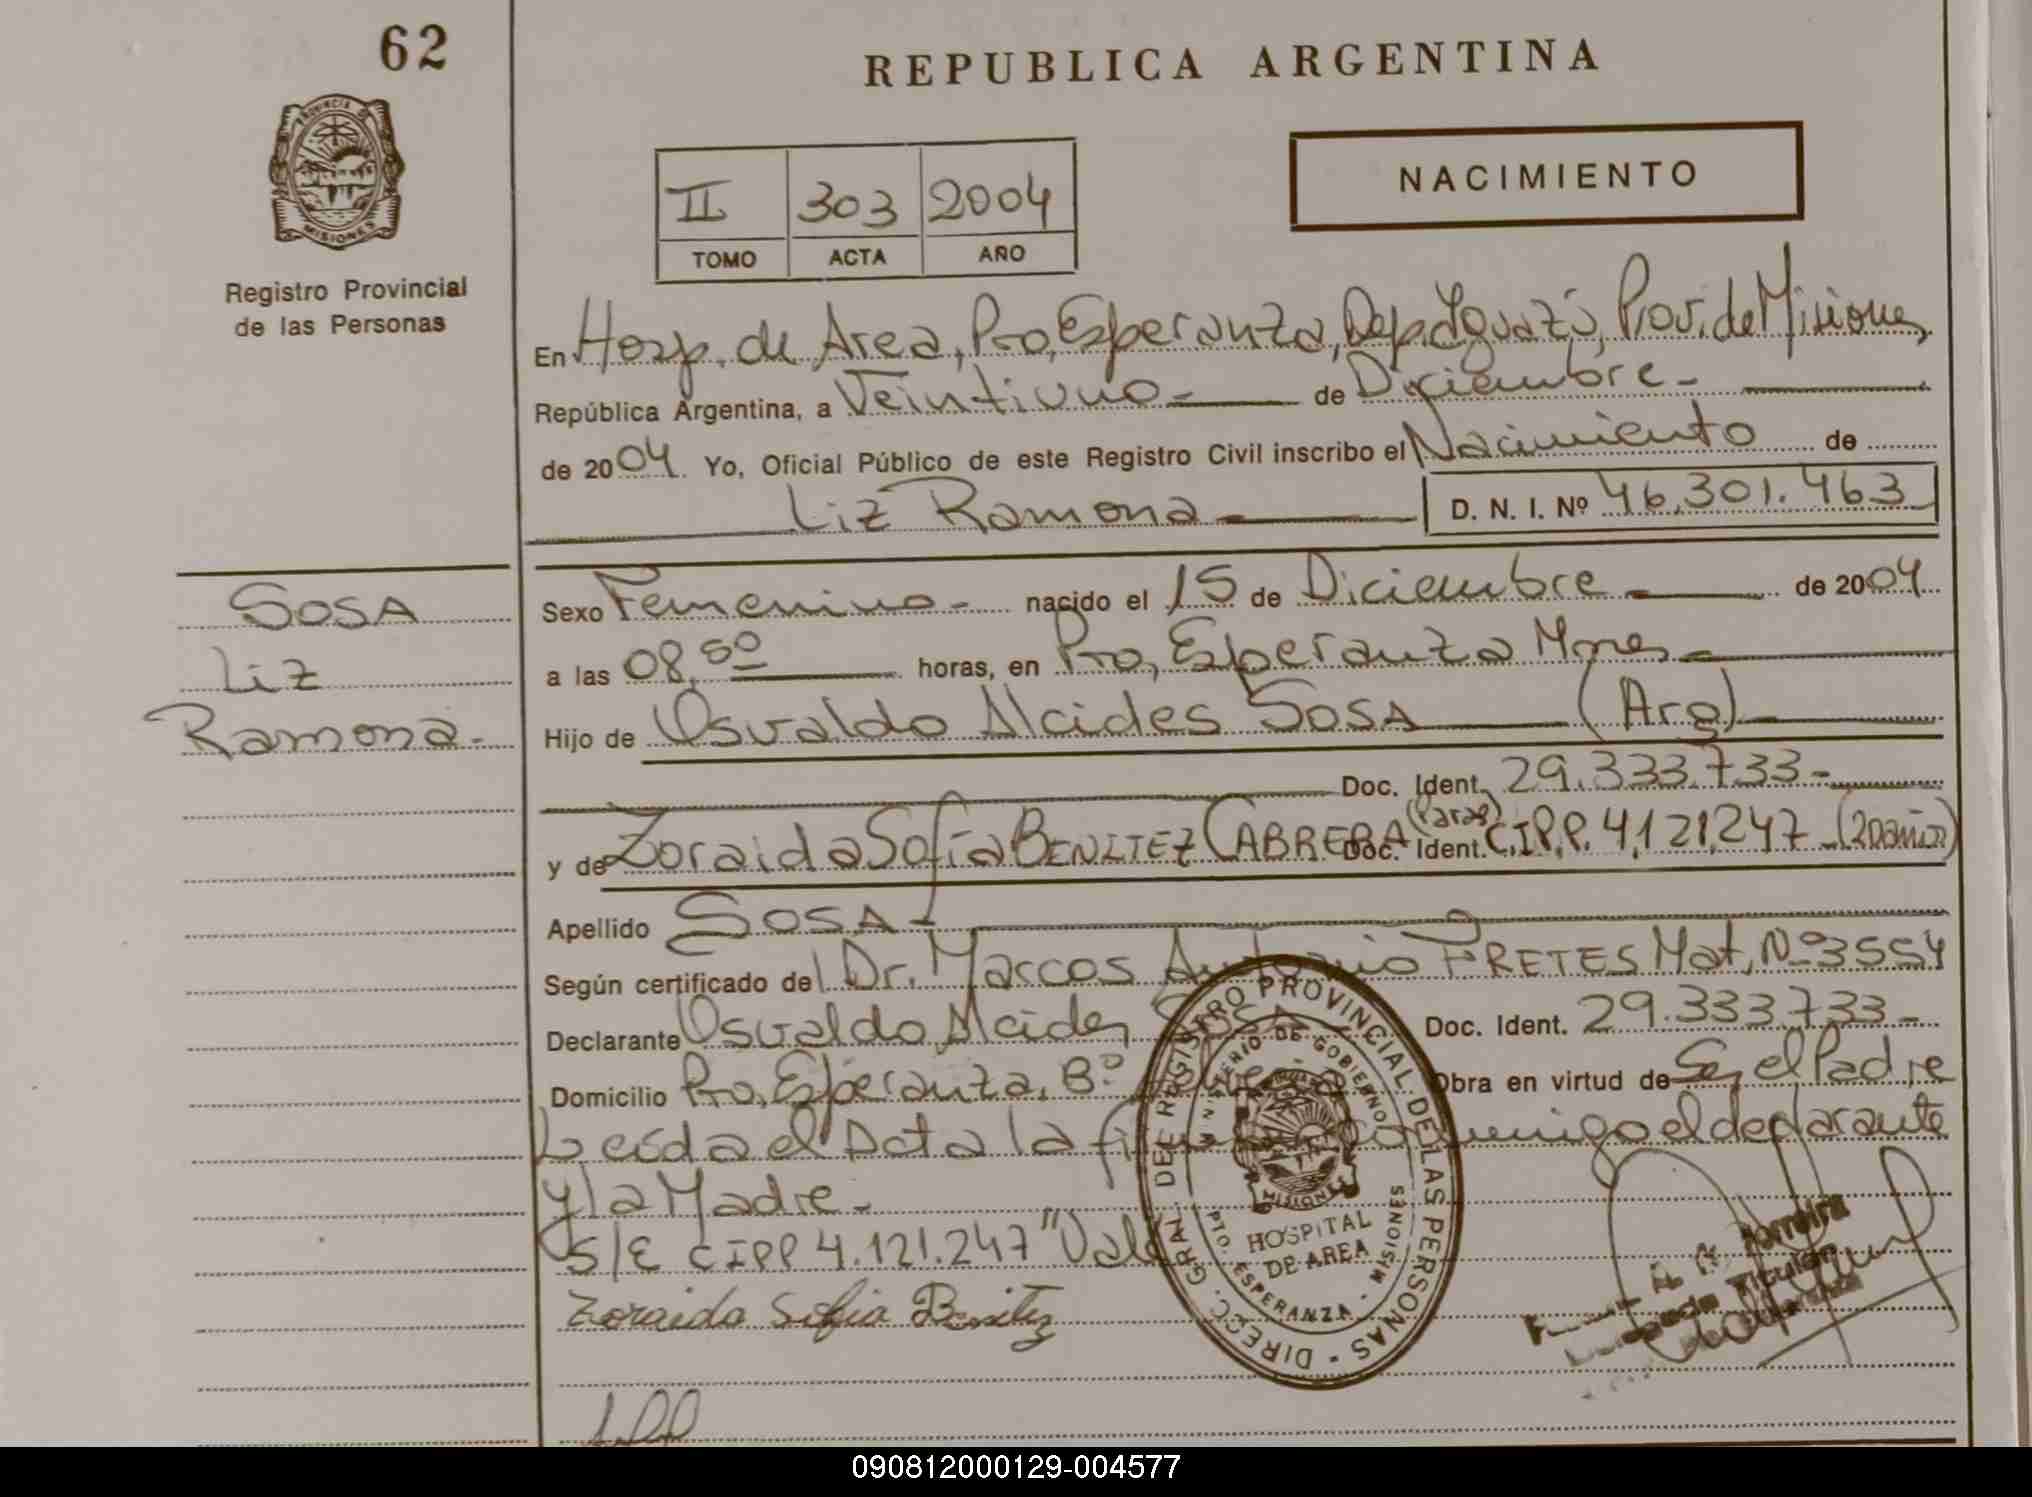 62
REPUBLICA ARGENTINA
PROVINCIA DE
MISIONES
Registro Provincial
de las Personas
II 303 2004
TOMO ACTA AÑO
NACIMIENTO
En Hosp. de Area, Pto, Esperanza, Dep. Iguazú, Prov. de Misiones,
República Argentina, a Veintiuno de Diciembre
de 2004 Yo, Oficial Público de este Registro Civil inscribo el Nacimiento de
Liz Ramona D. N. I. Nº 46.301.463
SOSA
Liz
Ramona
Sexo Femenino nacido el 15 de Diciembre de 2004
a las 08,50 horas, en Pto, Esperanza Mnes
Hijo de Osvaldo Alcides SOSA (Arg)
Doc. Ident. 29.333.733
y de Zoraida Sofía BENITEZ CABRERA (Parag) Doc. Ident. C.I.P.P. 4,121,247 (20 años)
Apellido SOSA
Según certificado de Dr. Marcos Antonio FRETES Mat, Nº 3554
Declarante Osvaldo Alcides SOSA Doc. Ident. 29.333.733
Domicilio Pto, Esperanza, Bº Obra en virtud de Ser el Padre
Leída el Acta la el declarante
y la Madre
S/E CIPP 4.121.247 "Vale
Zoraida Sofia Benitez
DIRECC. GRAL. DE REGISTRO PROVINCIAL DE LAS PERSONAS
MINISTERIO DE GOBIERNO
MISIONES
HOSPITAL
DE AREA
PTO. ESPERANZA - MISIONES
Titular
090812000129-004577